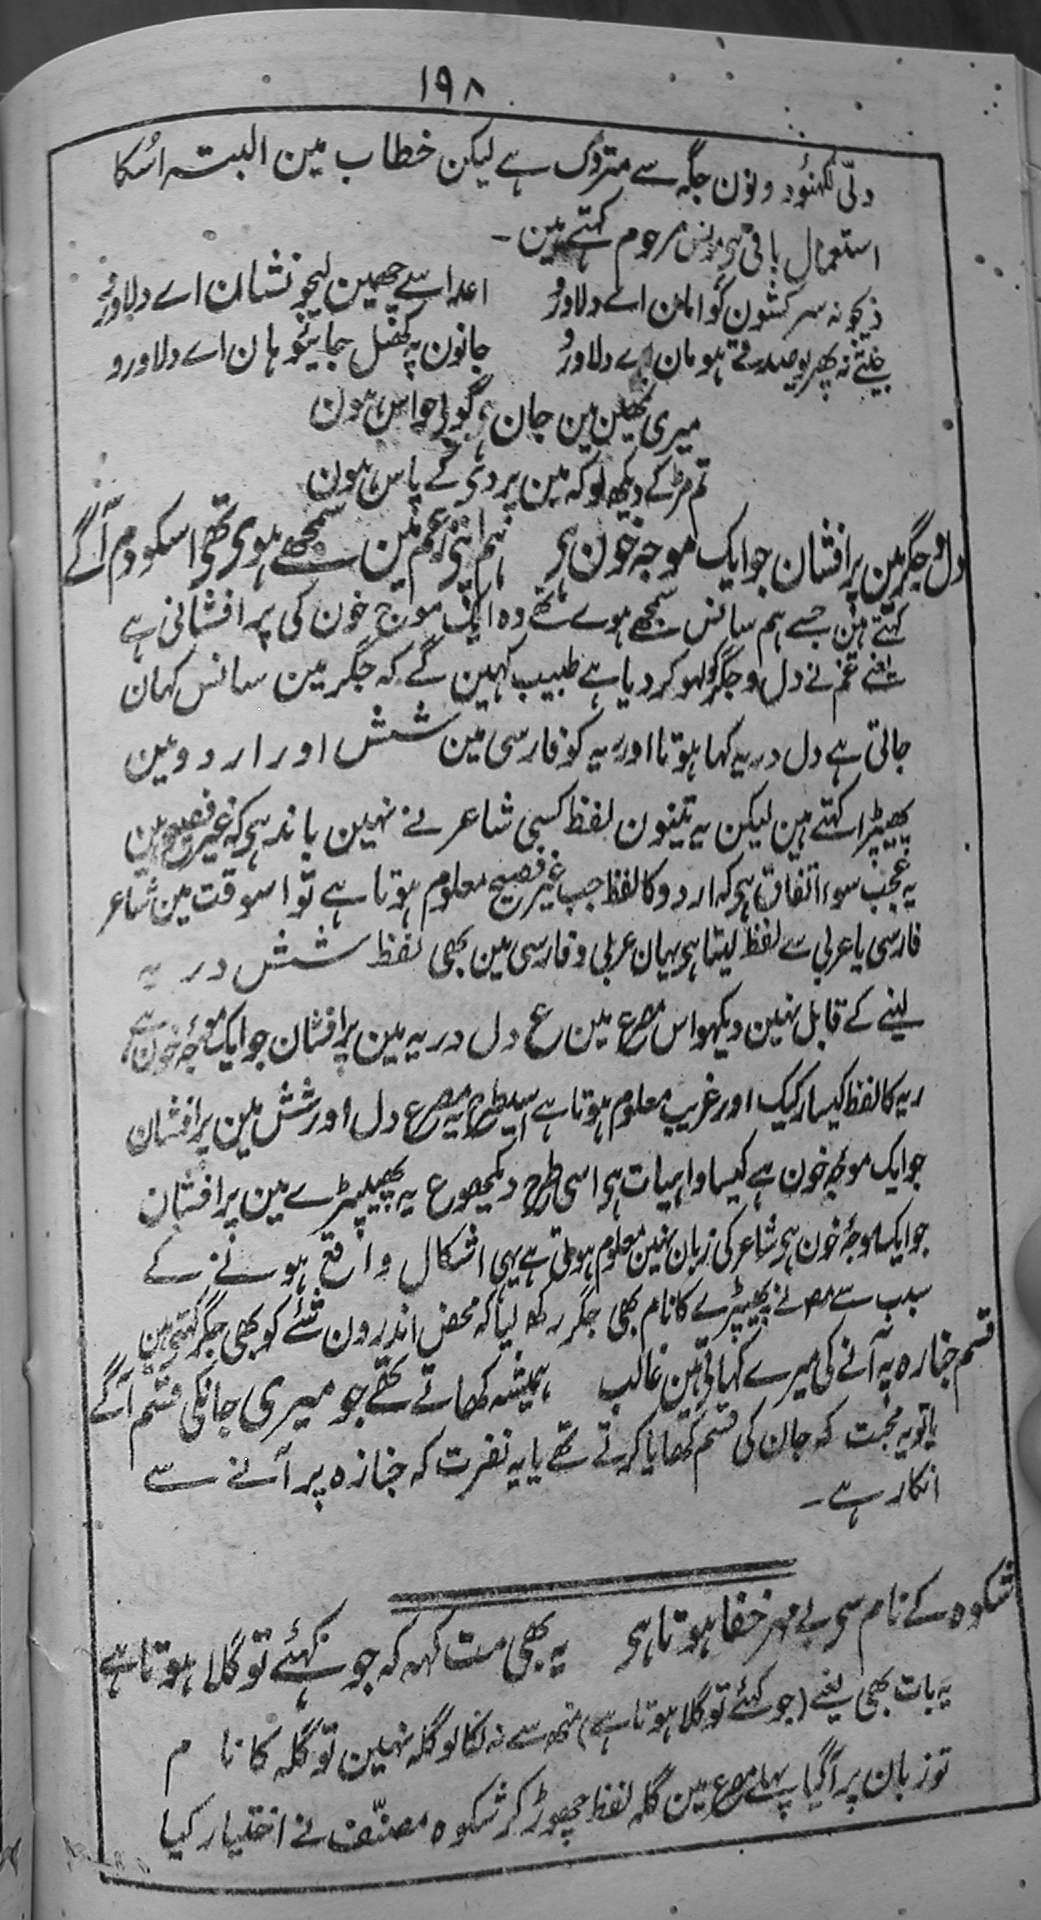 ۱۹۸
دلّی لکہنؤ دونون جگہ سے متروک ہے لیکن خطاب مین البتہ اسُکا
استعمال باقی ہی مونس مرحوم کہتے ہین ۔
دیجو نہ سرکشون کو امان اے دلاورو اعدا سے چھین لیجو نشان اے دلاورو
نہ پھر یہ صدقے ہو مان اے دلاورو جانون پہ کھیل جائیو ہان اے دلاورو
میری تمھین مین جان ہی گو بیحواس ہون
تم مڑ کے دیکھ لو کہ مین پردی کے پاس ہون
دل و جگر مین پرافشان جو ایک موجہ خون ہی ہم اپنی زعم مین سمجھے ہوی تھی اسکو دم آگے
کہتے ہین جسے ہم سانس سمجھے ہوے تھے وہ ایک موج خون کی پرافشانی ہے
یعنے غم نے دل و جگر کو لہو کر دیا ہے طبیب کہین گے کہ جگر مین سانس کہان
جاتی ہے دل و ریہ کہا ہوتا اور ریہ کو فارسی مین شش اور اردو مین
پھیپڑا کہتے ہین لیکن یہ تینون لفظ کسی شاعر نے نہین باندہی کہ غیر فصیح ہین
یہ عجب سوء اتفاق ہی کہ اردو کا لفظ جب غیر فصیح معلوم ہوتا ہے تو اسوقت مین شاعر
فارسی یا عربی سے لفظ لیتا ہی یہان عربی و فارسی مین بھی لفظ شش و ریہ
لینے کے قابل نہین دیکہو اس مصرع مین ع دل و ریہ مین پرافشان جو ایک موجۂ خون ہے
ریہ کا لفظ کیسا رکیک اور غریب معلوم ہوتا ہے اسیطرح یہ مصرع دل اور شش مین پرافشان
جو ایک موجۂ خون ہے کیسا واہیات ہی اسی طرح دیکھو ع یہ پھیپڑے مین پرافشان
جو ایک موجۂ خون ہی شاعر کی زبان نہین معلوم ہوتی ہے یہی اشکال واقع ہونے کے
سبب سے مصنف نے پھیپڑے کا نام بھی جگر رکھ لیا کہ محض اندرون شئے کو بھی جگر کہتے ہین
قسم جنازہ پہ آنے کی میرے کہاتی ہین غالب ہمیشہ کھاتے تھے جو میری جانکی قسم آگے
یا تو یہ محبت کہ جان کی قسم کھایا کرتے تھے یا یہ نفرت کہ جنازہ پر آنے سے
انکار ہے ۔
شکوہ کے نام سی بے مہر خفا ہوتا ہی یہ بھی مت کہہ کہ جو کہئے تو گلا ہوتا ہے
یہ بات بھی یعنے (جو کہئے تو گلا ہوتا ہے) منھ سے نہ نکالو گلہ نہین تو گلہ کا نام
تو زبان پر آگیا پہلے مصرع مین گلہ لفظ چھوڑ کر شکوہ مصنّف نے اختیار کیا